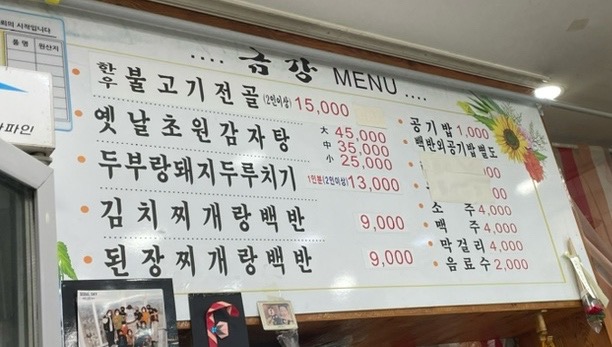 희의 시작입니다
품 명 원산지
파인
.... 금강 MENU ....
한우불고기전골(2인이상) 15,000
옛날초원감자탕 大 45,000
中 35,000
小 25,000
두부랑돼지두루치기 1인분(2인이상) 13,000
김치찌개랑백반 9,000
된장찌개랑백반 9,000
공기밥 1,000
백반외공기밥별도
00
00
소 주 4,000
맥 주 4,000
막걸리 4,000
음료수 2,000